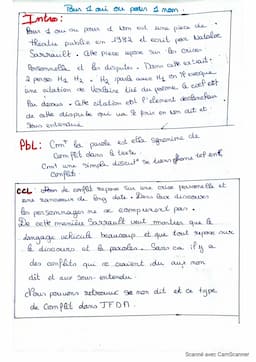 Pour 1 oui ou pour 1 non.
Intro:
Pour 1 ou ou pour 1 Non est une pièce de
théatre publié en 1982 et écrit par Natalie
Sarrault. Cette pièce repose sur les crises
Personnelle et les disputes. Dans cette extait.
2 perso H1 H2. H2 parle avec H1 en
une citation de Verlaine tiré du poème le ciel est
Par dessus. Cette citation est l'élément declencheur
de cette dispute qui va se finir en non dit et
Sous entendue
PbL: Cmt la parole est elle synonime de
Conflit dans le texte.
Cmt une simple discut° se transforme t-elle en
Conflit.
CCL: de conflit repose sur une crise personnelle et
une rancoeurs de long date. Dans leur discours
les personnages ne se comprennent pas.
De cette manière Sarrault veut montrer que le
langage véhicule beaucoup et que tout repose sur
le discours et la paroles. Sans ca il y a
des conflits qui se créent du au non
dit et aux sous-entendu.
Nous pouvons retrouvé se non dit et ce type
de Conflit dans JFDM.
Scanné avec CamScanner